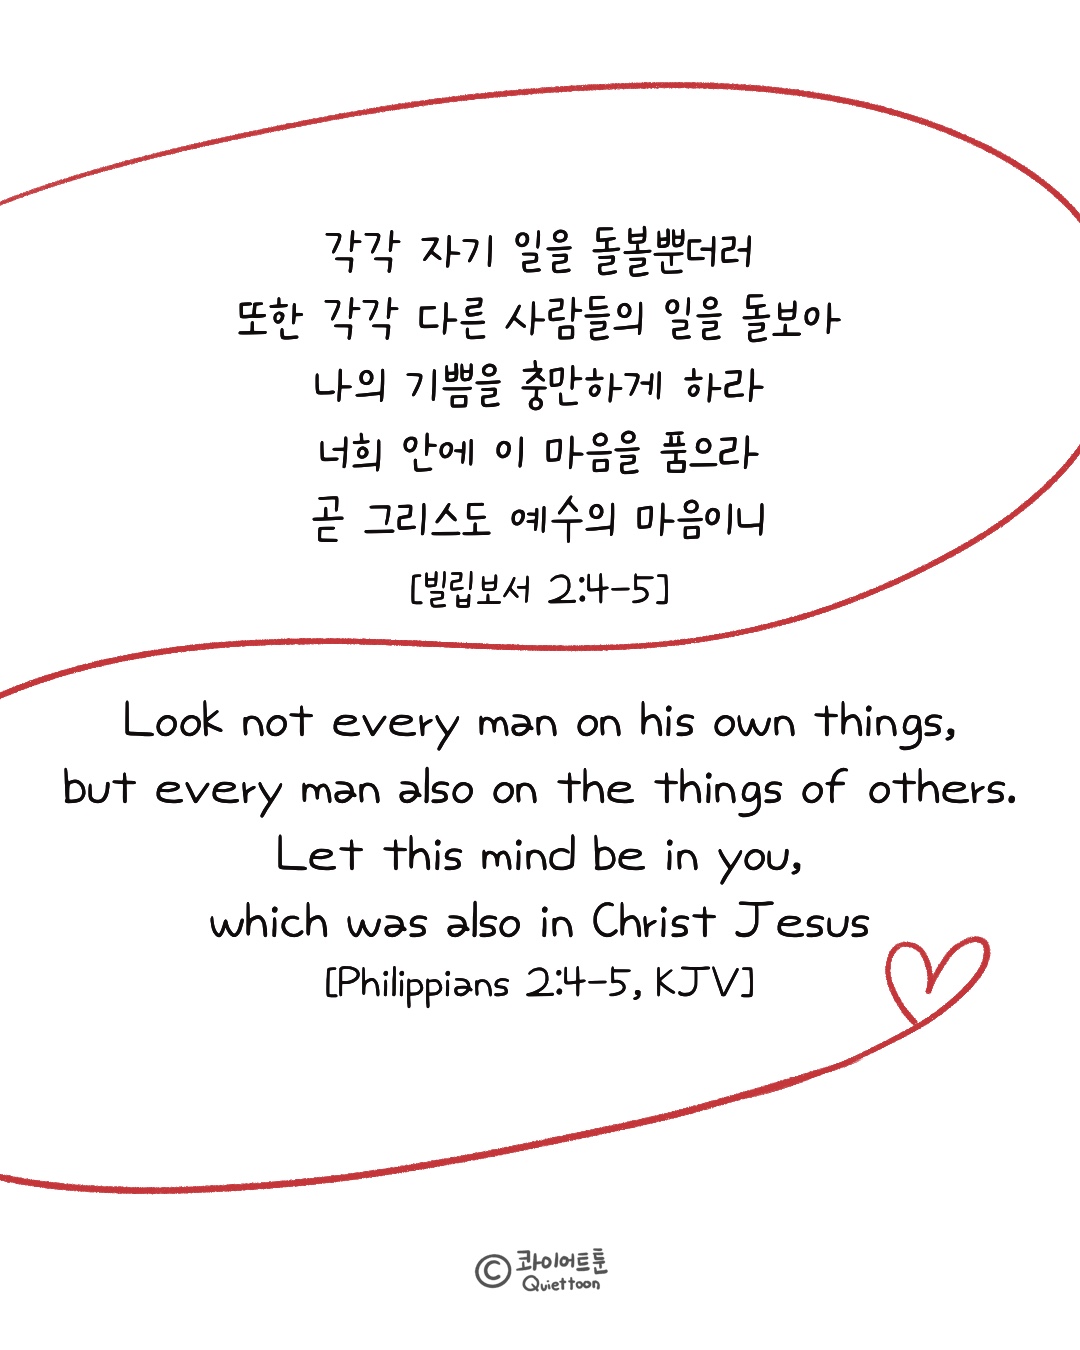 각각 자기 일을 돌볼뿐더러
또한 각각 다른 사람들의 일을 돌보아
나의 기쁨을 충만하게 하라
너희 안에 이 마음을 품으라
곧 그리스도 예수의 마음이니
[빌립보서 2:4-5]
Look not every man on his own things,
but every man also on the things of others.
Let this mind be in you,
which was also in Christ Jesus
[Philippians 2:4-5, KJV]
© 콰이어트툰
Quiettoon